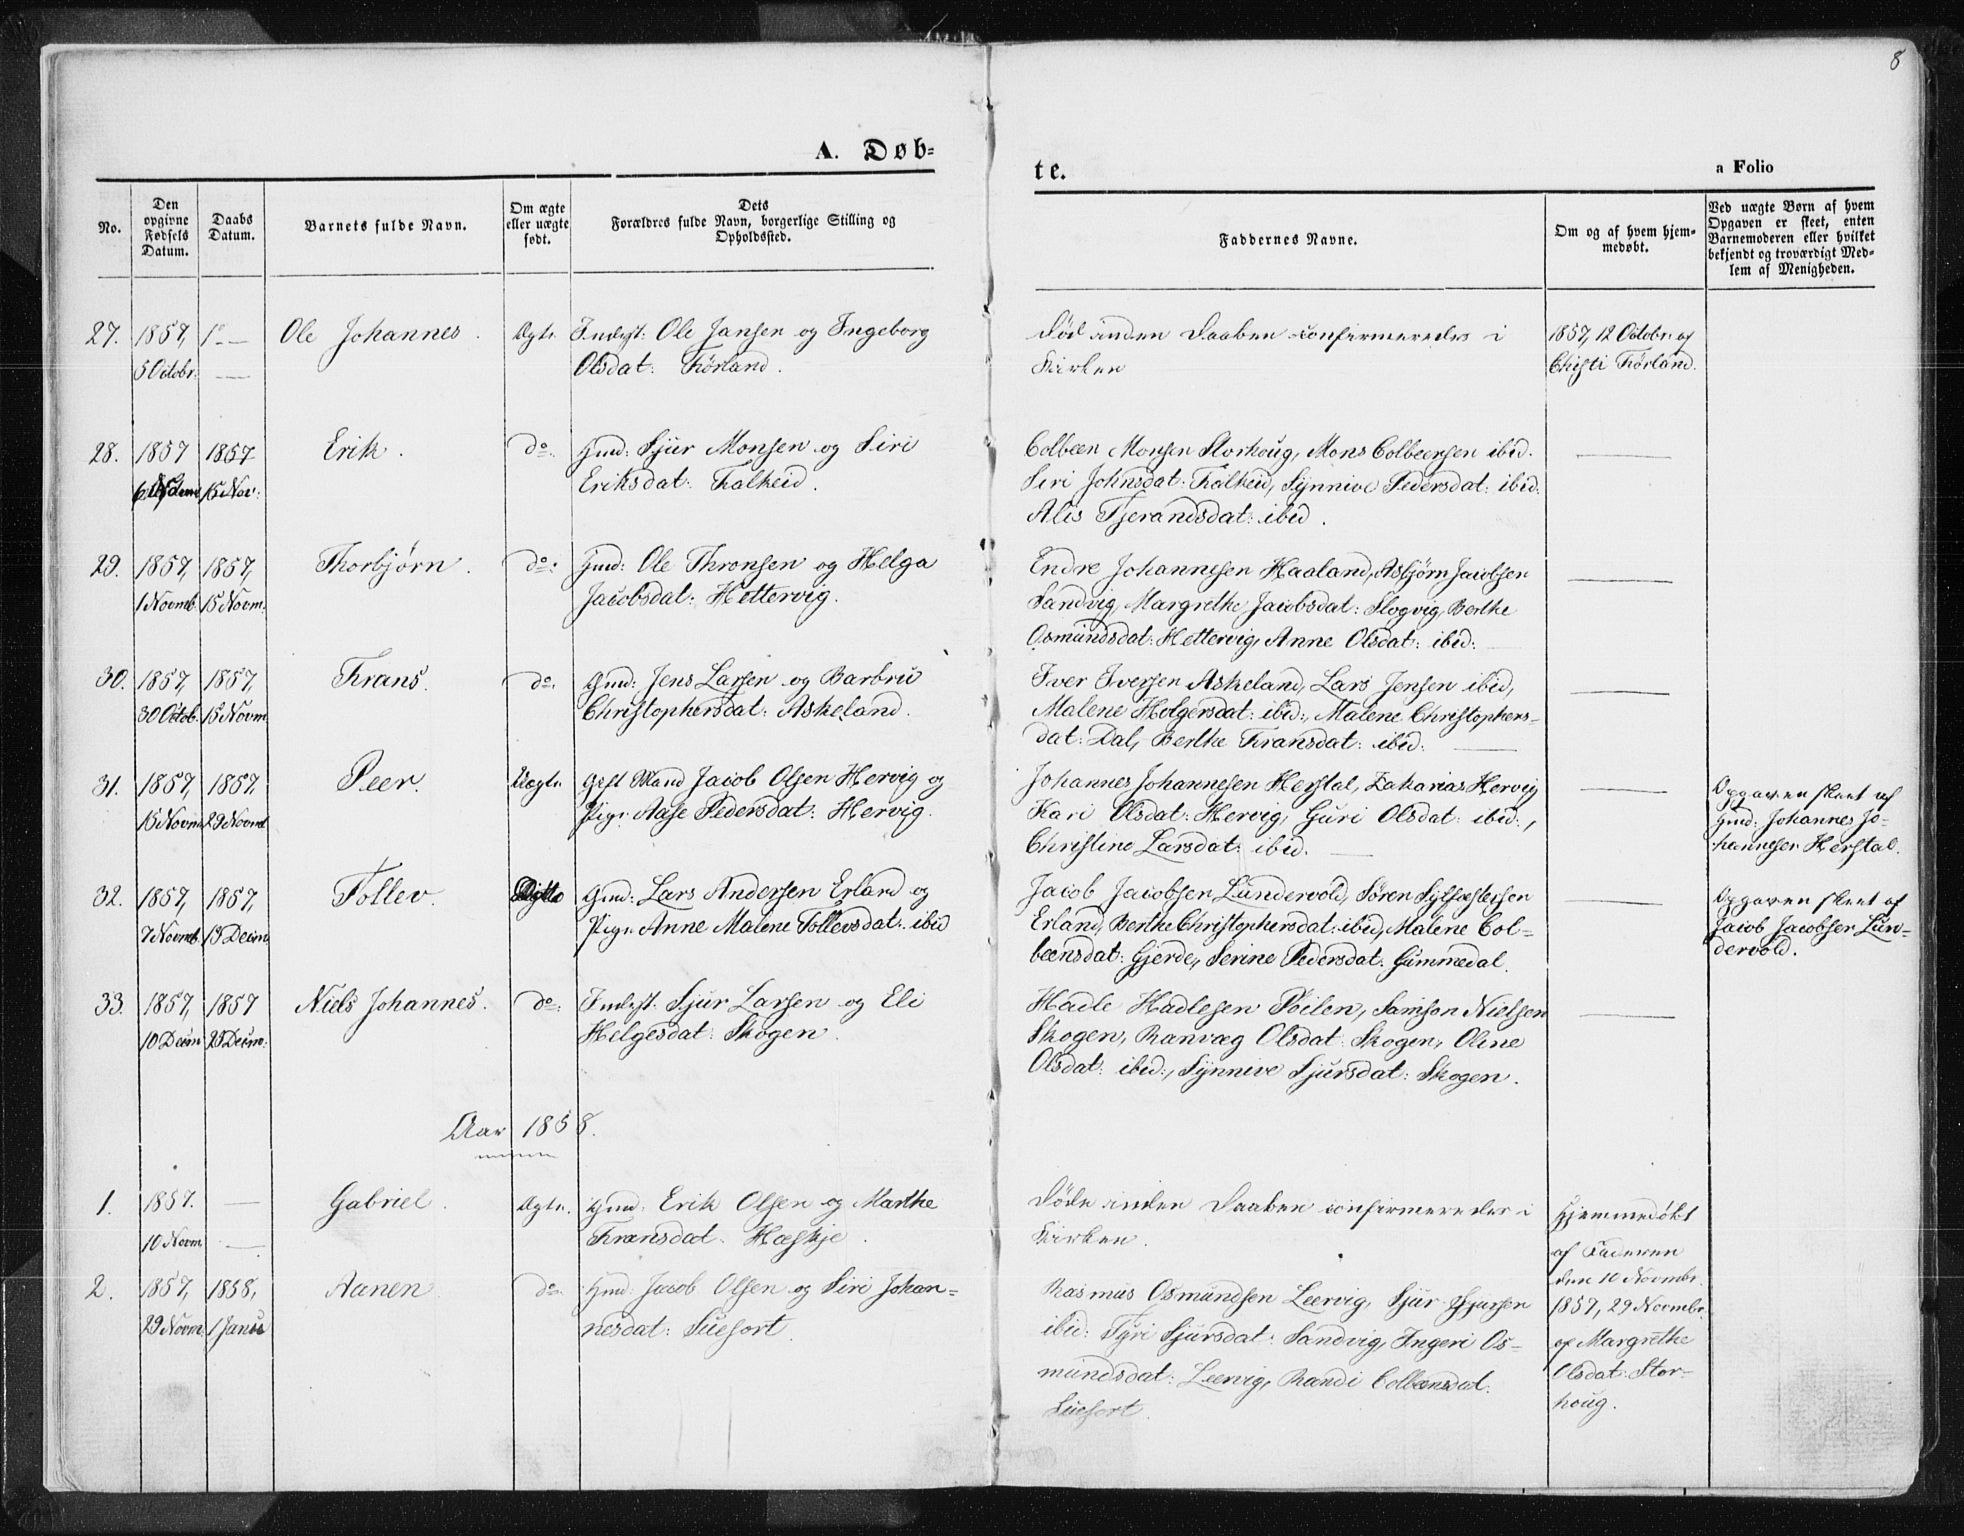 8
A. Døb-
te.
a Folio
No.
Den
opgivne
Fødsels
Datum.
Daabs
Datum.
Barnets fulde Navn.
Om ægte
eller uægte
født.
Dets
Forældres fulde Navn, borgerlige Stilling og
Opholdssted.
Faddernes Navne.
Om og af hvem hjem-
medøbt.
Ved uægte Born af hvem
Opgaven er skeet, enten
Barnemoderen eller hvilket
bekjendt og troværdigt Med-
lem af Menigheden.
27. 1857, Ole Johannes. Ægte. Inderst: Ole Jansen og Ingeborg
5 Octobr:
Olsdat: Førland.
Død inden Daaben confirmeredes i
Kirken
1857, 12 Octobr: af
Christi Førland.
28. 1857 1857 Erik. do. Gmd: Sjur Monsen og Siri
15 Nov:
Eriksdat: Falkeid.
Colbeen Monsen Storhoug, Mons Colbeensen ibid.
Siri Johnsdat: Falkeid, Synnive Pedersdat: ibid:
Alis Tjerandsdat: ibid.
29. 1857, 1857, Thorbjørn. do: Gmd: Ole Thronsen og Helga
1 Novmb. 15 Novm:
Jacobsdat: Hettervig.
Endre Johannesen Haaland, Asbjørn Jacobsen
Sandvig, Margrethe Jacobsdat: Slogvig, Berthe
Osmundsdat: Hettervig, Anne Olsdat: ibid:
30. 1857, 1857, Frans. do. Gmd: Jens Larsen og Barbru
30 Octob. 15 Novm
Christophersdat: Askeland.
Iver Iversen Askeland, Lars Jensen ibid,
Malene Holgersdat: ibid:, Malene Christophers-
dat: Dal, Berthe Fransdat: ibid:
31. 1857, 1857, Peer. Uægte. Gift Mand Jacob Olsen Hervig og
15 Novm 29 Novmb
Pige Aase Pedersdat: Hervig.
Johannes Johannesen Herstal, Zakarias Hervig
Kari Olsdat: Hervig, Guri Olsdat: ibid:,
Christine Larsdat: ibid.
Opgaven skeet af
Gmd: Johannes Jo-
hannesen Herstal.
32. 1857, 1857, Tollev. Gmd: Lars Andersen Erland og
7 Novmb. 13 Decm
Pige Anne Malene Tollevsdat: ibid
Jacob Jacobsen Lundervold, Søren
Erland, Berthe Christophersdat: ibid, Malene Col-
beensdat: Gjerde, Serine Pedersdat: Gummedal.
Opgaven skeet af
Jacob Jacobsen Lun-
dervold.
33. 1857, 1857 Niels Johannes. do: Inderst: Sjur Larsen og Eli
10 Decm 25 Decm:
Helgesdat: Skogen.
Hadle Hadlesen Poilen, Samson Nielsen
Skogen, Ranvæg Olsdat: Skogen, Oline
Olsdat: ibid:, Synnive Sjursdat: Skogen.
Aar 1858.
1. 1857. Gabriel. Ægte. Gmd: Erik Olsen og Marthe
10 Novm
Fransdat: Hæskje.
Døde inden Daaben confirmeredes i
Kirken.
Hjemmedøbt
af Faderen
den 10 Novmbr.
2. 1857, 1858, Aanen. do. Gmd: Jacob Olsen og Siri Johan-
29 Novm 1 Janu
nesdat: Suefort.
Rasmus Osmundsen Leervig, Sjur Sjursen
ibid: Tyri Sjursdat: Sandvig, Ingeri Os-
mundsdat: Leervig, Randi Colbensdat:
Suefort.
1857, 29 Novmbr.
af Margrethe
Olsdat: Stor-
houg.